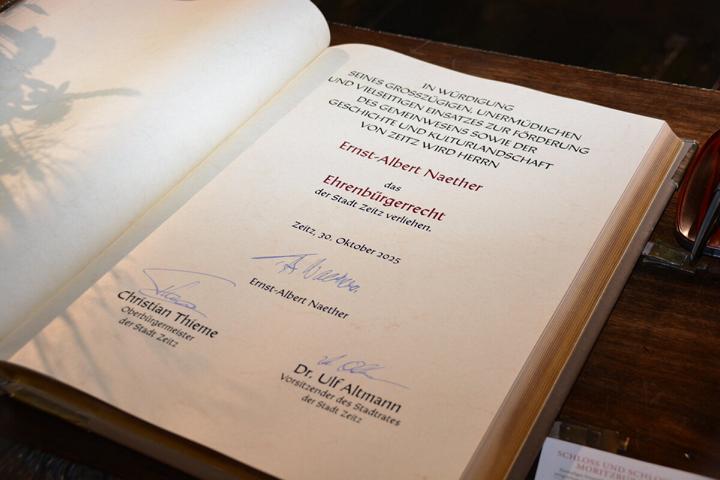 IN WÜRDIGUNG
SEINES GROSSZÜGIGEN, UNERMÜDLICHEN
UND VIELSEITIGEN EINSATZES ZUR FÖRDERUNG
DES GEMEINWESENS SOWIE DER
GESCHICHTE UND KULTURLANDSCHAFT
VON ZEITZ WIRD HERRN
Ernst-Albert Naether
das
Ehrenbürgerrecht
der Stadt Zeitz verliehen.
Zeitz, 30. Oktober 2025
Ernst-Albert Naether
Christian Thieme
Oberbürgermeister
der Stadt Zeitz
Dr. Ulf Altmann
Vorsitzender des Stadtrates
der Stadt Zeitz
SCHLOSS UND